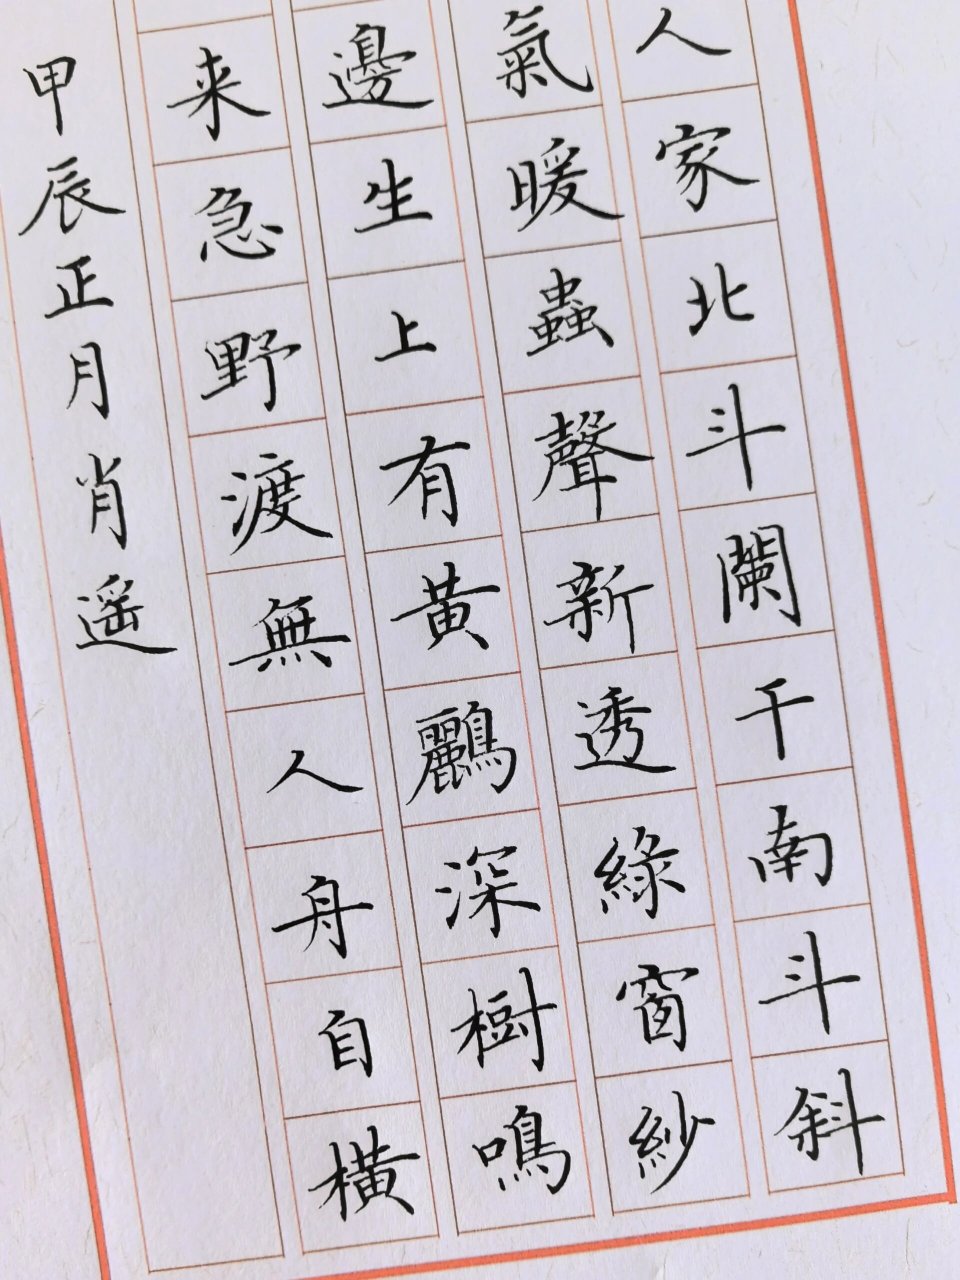 人家北斗闌干南斗斜
氣暖蟲聲新透綠窗紗
邊生上有黃鸝深樹鳴
来急野渡無人舟自橫
甲辰正月肖遥